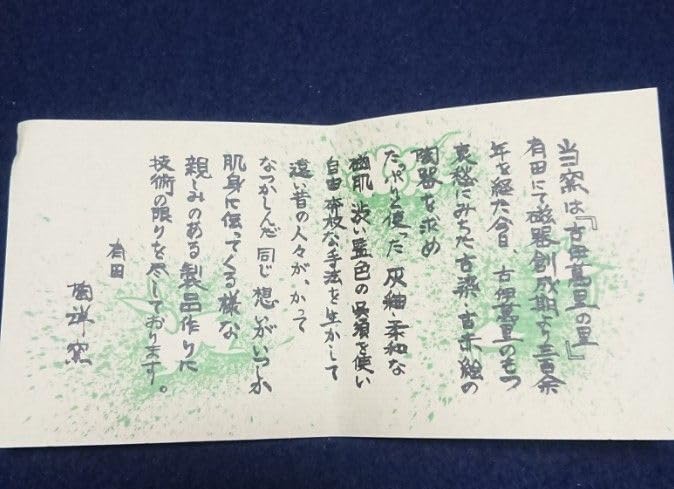 当窯は『古伊萬里の里』
有田にて磁器創成期より三百余
年を経た今日、古伊萬里のもつ
哀愁にみちた古染、古赤絵の
陶器を求め
たっぷりと使った灰釉、柔和な
磁肌、渋い藍色の呉須を使い
自由奔放な手法を生かして
遠い昔の人々が、かって
なつかしんだ同じ想いがいつしか
肌身に伝ってくる様な
親しみのある製品作りに
技術の限りを尽しております。
有田
陶洋窯